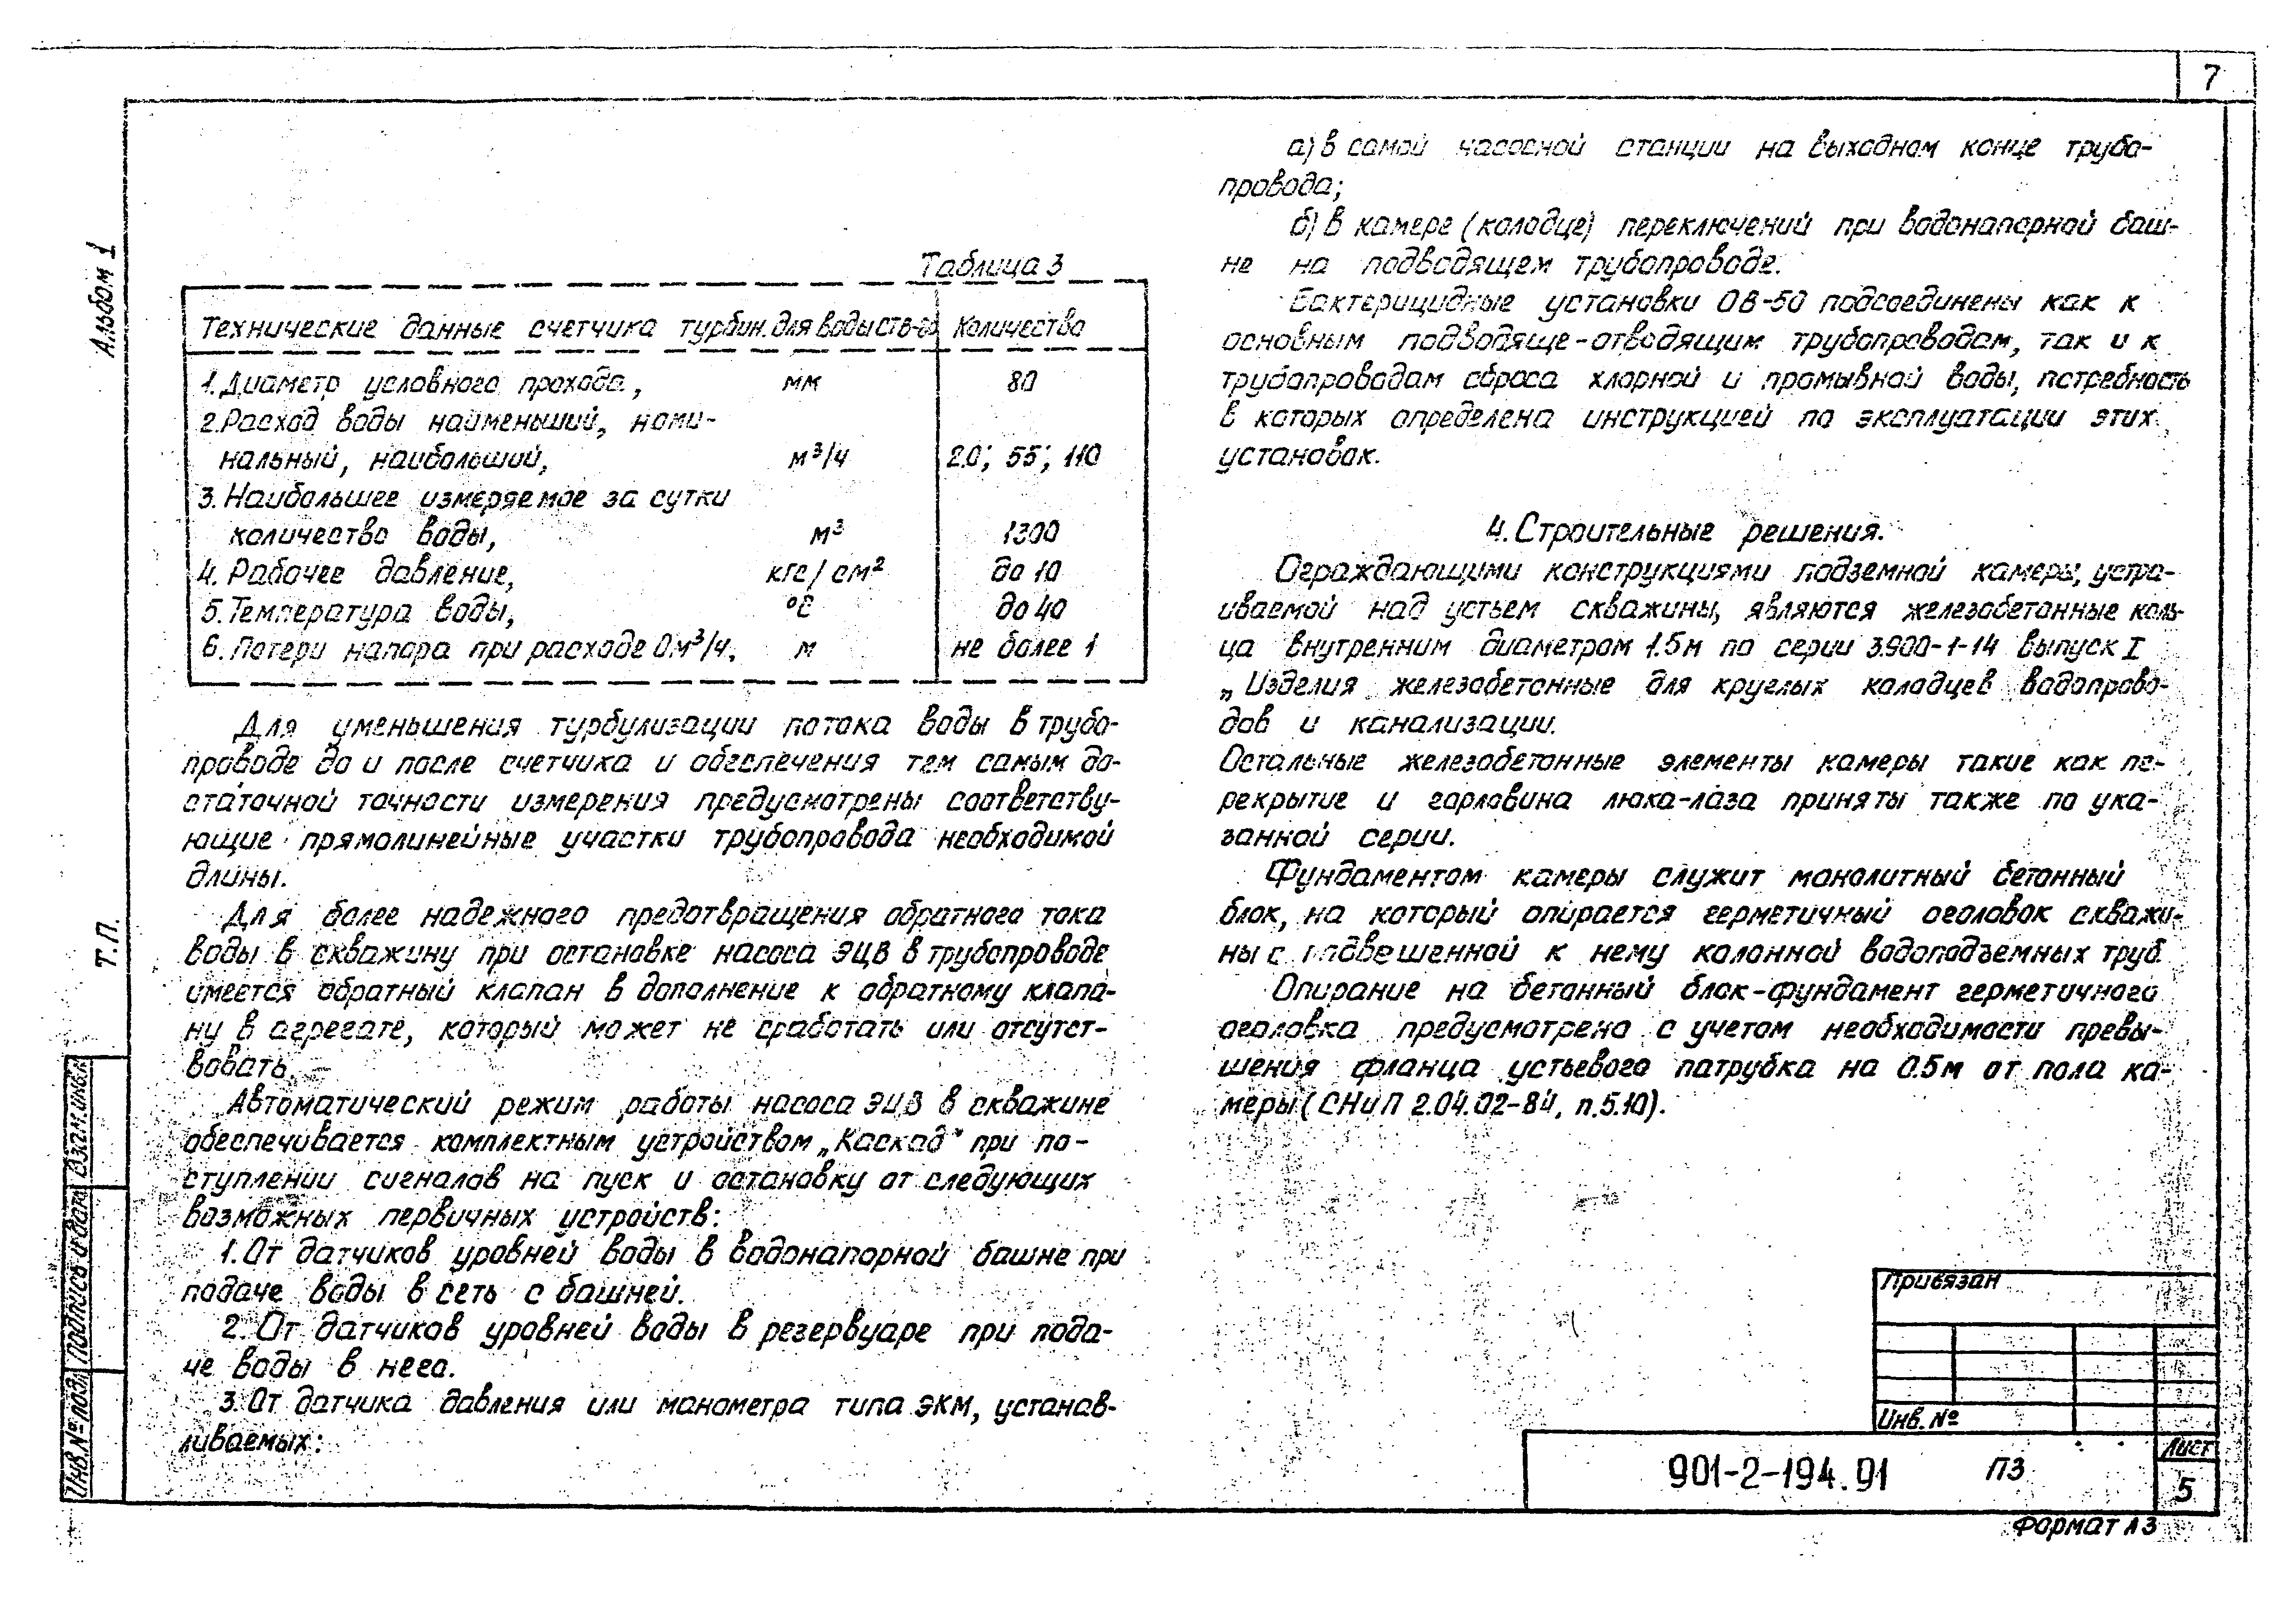 7
Альбом 1
Т.П.
Таблица 3
Технические данные счетчика турбин. для воды СТВ-80 Количество
1. Диаметр условного прохода, мм 80
2. Расход воды наименьший, номи-
нальный, наибольший, м³/ч 2.0; 55; 110
3. Наибольшее измеряемое за сутки
количество воды, м³ 1300
4. Рабочее давление, кгс/см² до 10
5. Температура воды, °С до 40
6. Потери напора при расходе 0м³/ч, м не более 1
Для уменьшения турбулизации потока воды в трубо-
проводе до и после счетчика и обеспечения тем самым до-
статочной точности измерения предусмотрены соответству-
ющие прямолинейные участки трубопровода необходимой
длины.
Для более надежного предотвращения обратного тока
воды в скважину при остановке насоса ЭЦВ в трубопроводе
имеется обратный клапан в дополнение к обратному клапа-
ну в агрегате, который может не сработать или отсутст-
вовать.
Автоматический режим работы насоса ЭЦВ в скважине
обеспечивается комплектным устройством „Каскад" при по-
ступлении сигналов на пуск и остановку от следующих
возможных первичных устройств:
1. От датчиков уровней воды в водонапорной башне при
подаче воды в сеть с башней.
2. От датчиков уровней воды в резервуаре при пода-
че воды в него.
3. От датчика давления или манометра типа ЭКМ, устанав-
ливаемых:
а) в самой насосной станции на выходном конце трубо-
провода;
б) в камере (колодце) переключений при водонапорной баш-
не на подводящем трубопроводе.
Бактерицидные установки ОВ-50 подсоединены как к
основным подводяще-отводящим трубопроводам, так и к
трубопроводам сброса хлорной и промывной воды, потребность
в которых определена инструкцией по эксплуатации этих
установок.
4. Строительные решения.
Ограждающими конструкциями подземной камеры, устра-
иваемой над устьем скважины, являются железобетонные коль-
ца внутренним диаметром 1.5м по серии 3.900-1-14 выпуск I
„Изделия железобетонные для круглых колодцев водопрово-
дов и канализации.
Остальные железобетонные элементы камеры такие как пе-
рекрытие и горловина люка-лаза приняты также по ука-
занной серии.
Фундаментом камеры служит монолитный бетонный
блок, на который опирается герметичный оголовок скважи-
ны с подвешенной к нему колонной водоподъемных труб.
Опирание на бетонный блок-фундамент герметичного
оголовка предусмотрено с учетом необходимости превы-
шения фланца устьевого патрубка на 0.5м от пола ка-
меры (СНиП 2.04.02-84, п.5.10).
Привязан
Инв. №
901-2-194.91 ПЗ
Лист
5
Формат А3
Взам. инв. №
Подпись и дата
Инв. № подл.